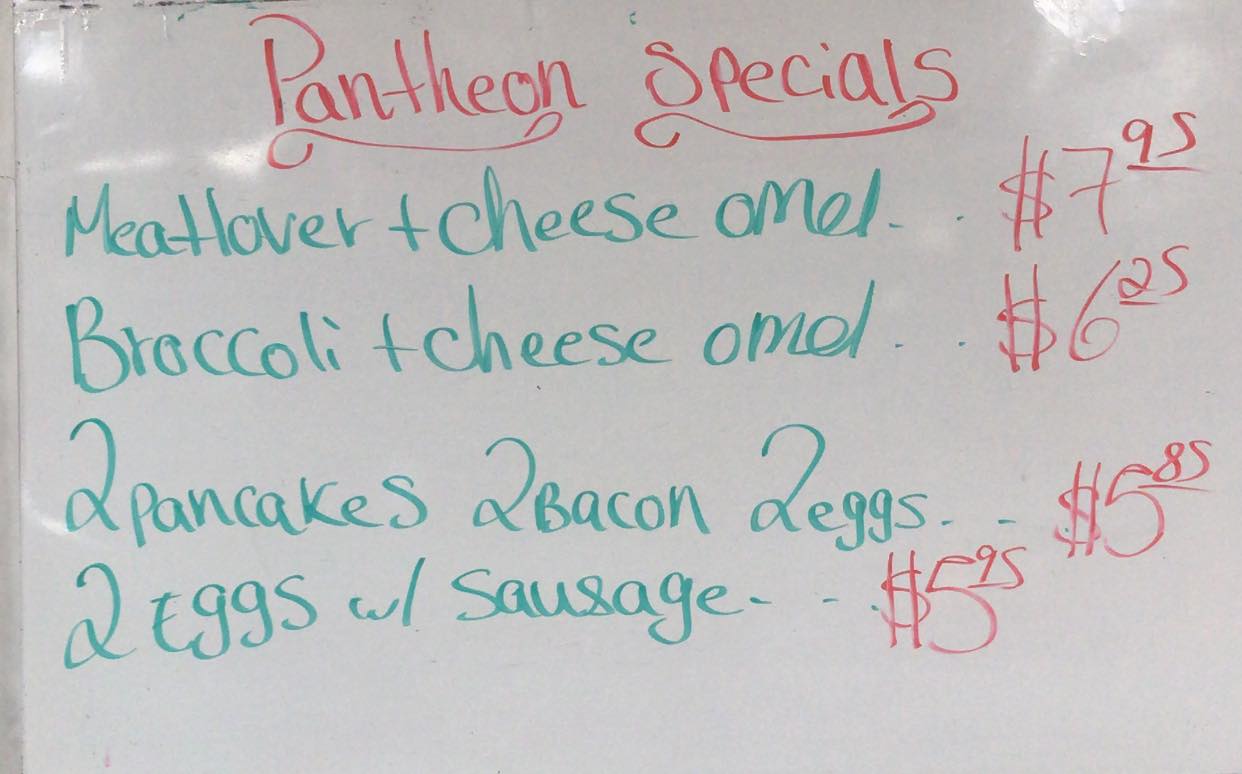 Pantheon Specials
Meatlover + cheese omel. . $7.95
Broccoli + cheese omel . . $6.25
2 pancakes 2 Bacon 2 eggs. . $5.85
2 Eggs w/ Sausage. . . $5.95